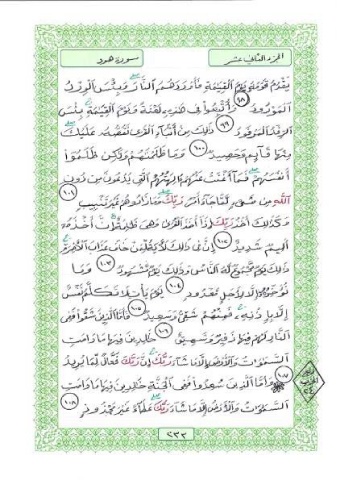 الجزء الثاني عشر
سورة هود
يقدم قومه يوم القيمة فأوردهم النار وبئس الورد
المورود ٩٨ وأتبعوا في هذه لعنة ويوم القيمة بئس
الرفد المرفود ٩٩ ذلك من أنباء القرى نقصه عليك
منها قائم وحصيد ١٠٠ وما ظلمنهم ولكن ظلموا
أنفسهم فما أغنت عنهم ءالهتهم التي يدعون من دون
الله من شيء لما جاء أمر ربك وما زادوهم غير تتبيب ١٠١
وكذلك أخذ ربك إذا أخذ القرى وهي ظلمة إن أخذه
أليم شديد ١٠٢ إن في ذلك لأية لمن خاف عذاب الأخرة
ذلك يوم مجموع له الناس وذلك يوم مشهود ١٠٣ وما
نؤخره إلا لأجل معدود ١٠٤ يوم يأت لا تكلم نفس
إلا بإذنه فمنهم شقي وسعيد ١٠٥ فأما الذين شقوا ففي
النار لهم فيها زفير وشهيق ١٠٦ خلدين فيها ما دامت
السموات والأرض إلا ما شاء ربك إن ربك فعال لما يريد
١٠٧ وأما الذين سعدوا ففي الجنة خلدين فيها ما دامت
السموات والأرض إلا ما شاء ربك عطاء غير مجذوذ ١٠٨
٢٣٣